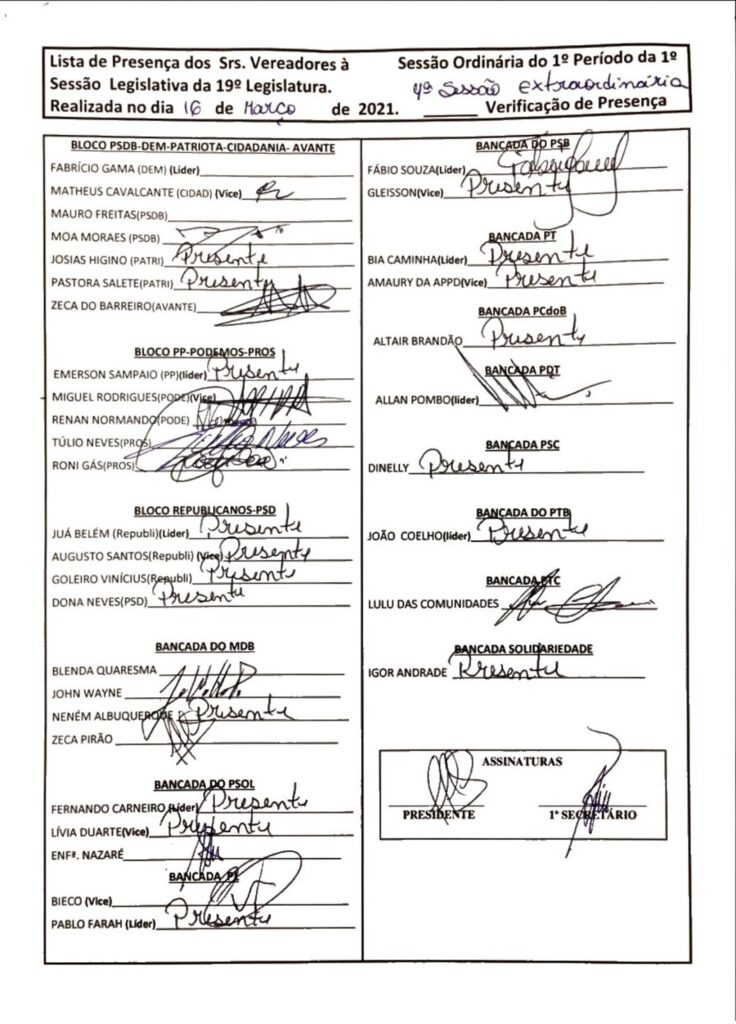 Lista de Presença dos Srs. Vereadores à Sessão Ordinária do 1º Período da 1º
Sessão Legislativa da 19º Legislatura. 4ª Sessão extraordinária
Realizada no dia 16 de Março de 2021. ______ Verificação de Presença
BLOCO PSDB-DEM-PATRIOTA-CIDADANIA- AVANTE
FABRÍCIO GAMA (DEM) (Líder)
MATHEUS CAVALCANTE (CIDAD) (Vice)
MAURO FREITAS(PSDB)
MOA MORAES (PSDB)
JOSIAS HIGINO (PATRI) Presente
PASTORA SALETE(PATRI) Presente
ZECA DO BARREIRO(AVANTE)
BLOCO PP-PODEMOS-PROS
EMERSON SAMPAIO (PP)(líder) Presente
MIGUEL RODRIGUES(PODE)(Vice)
RENAN NORMANDO(PODE)
TÚLIO NEVES(PROS)
RONI GÁS(PROS)
BLOCO REPUBLICANOS-PSD
JUÁ BELÉM (Republi)(Líder) Presente
AUGUSTO SANTOS(Republi) (Vice) Presente
GOLEIRO VINÍCIUS(Republi) Presente
DONA NEVES(PSD) Presente
BANCADA DO MDB
BLENDA QUARESMA
JOHN WAYNE
NENÉM ALBUQUERQUE Presente
ZECA PIRÃO
BANCADA DO PSOL
FERNANDO CARNEIRO (Líder) Presente
LÍVIA DUARTE(Vice) Presente
ENFª. NAZARÉ
BANCADA PL
BIECO (Vice)
PABLO FARAH (Líder) Presente
BANCADA DO PSB
FÁBIO SOUZA(Líder)
GLEISSON(Vice) Presente
BANCADA PT
BIA CAMINHA(Líder) Presente
AMAURY DA APPD(Vice) Presente
BANCADA PCdoB
ALTAIR BRANDÃO Presente
BANCADA PDT
ALLAN POMBO(líder)
BANCADA PSC
DINELLY Presente
BANCADA DO PTB
JOÃO COELHO(líder) Presente
BANCADA PTC
LULU DAS COMUNIDADES
BANCADA SOLIDARIEDADE
IGOR ANDRADE Presente
ASSINATURAS
PRESIDENTE 1º SECRETÁRIO